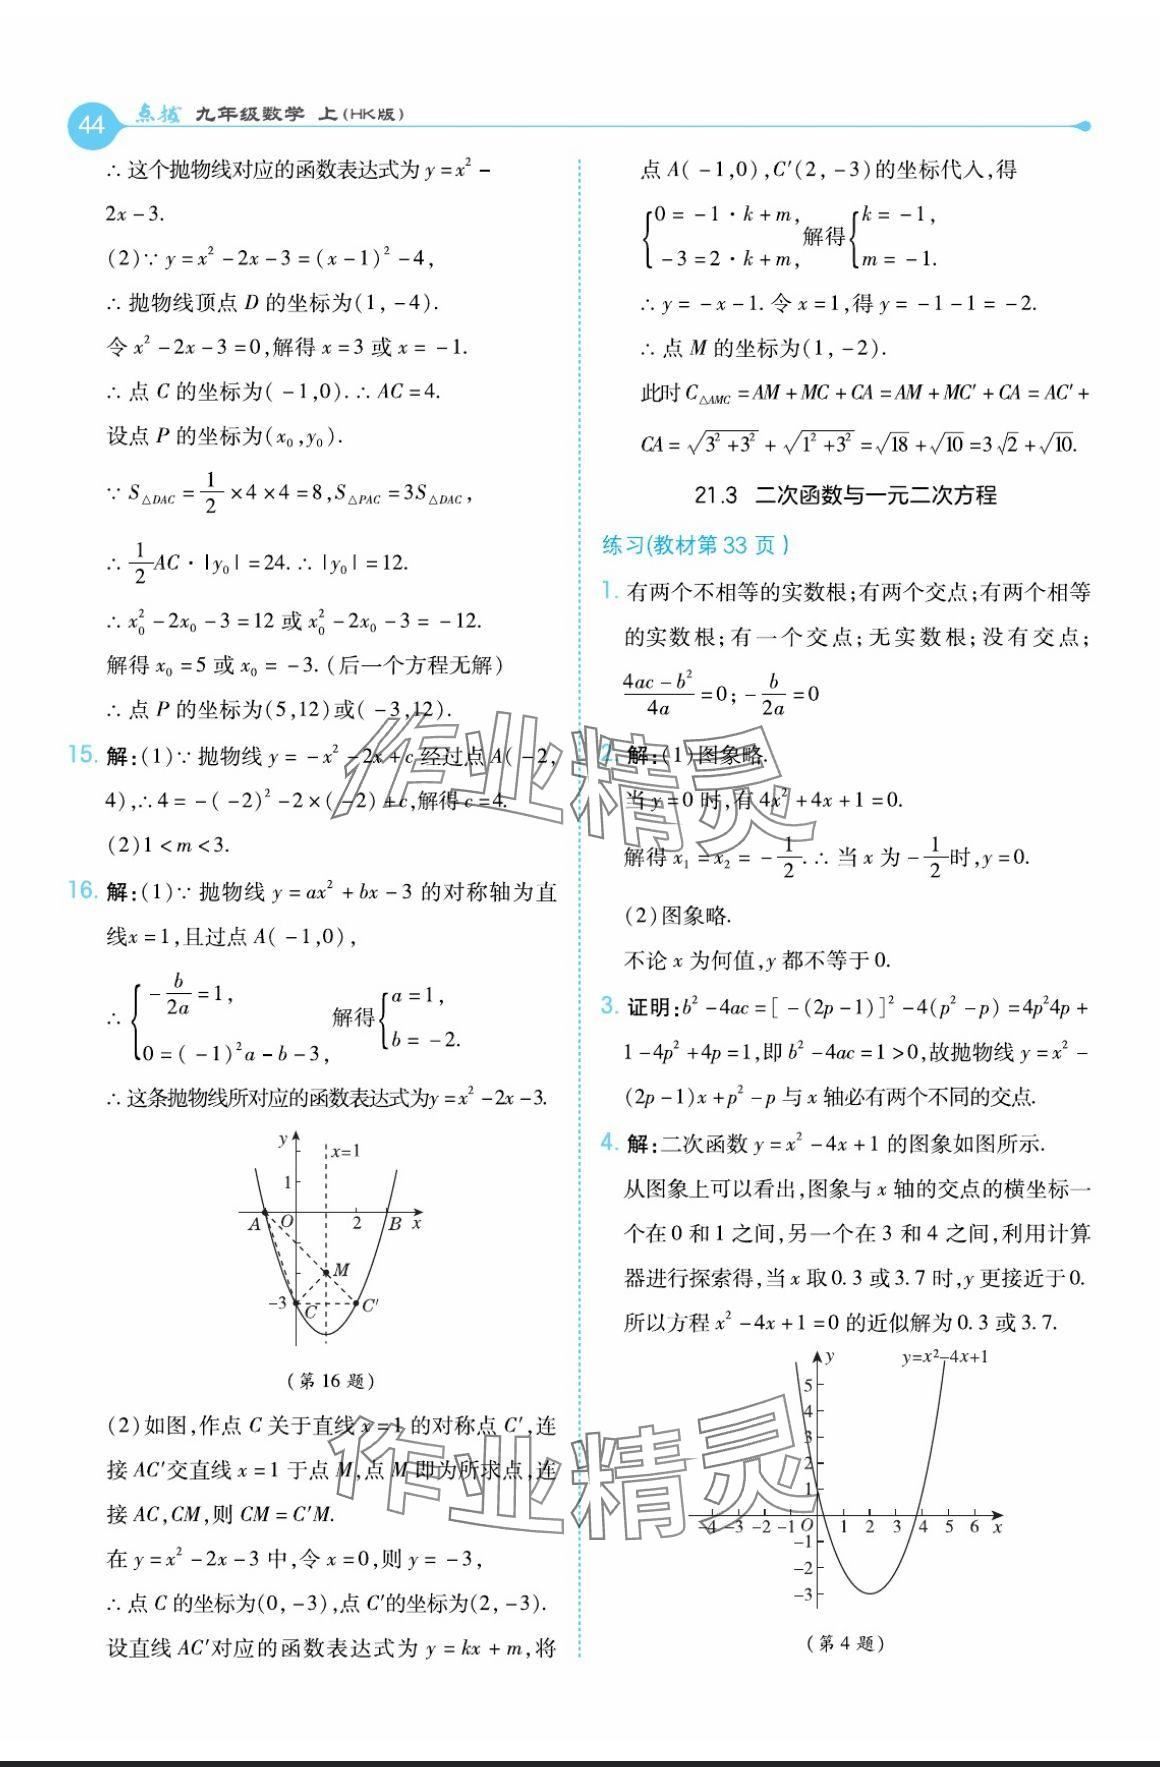 44 点拨 九年级数学 上(HK版)
∴这个抛物线对应的函数表达式为 y=x²-
2x-3.
(2)∵y=x²-2x-3=(x-1)²-4,
∴抛物线顶点 D 的坐标为(1,-4).
令 x²-2x-3=0,解得 x=3 或 x=-1.
∴点 C 的坐标为(-1,0).∴AC=4.
设点 P 的坐标为(x₀,y₀).
∵S△DAC=1/2×4×4=8,S△PAC=3S△DAC,
∴1/2AC·|y₀|=24.∴|y₀|=12.
∴x₀²-2x₀-3=12 或 x₀²-2x₀-3=-12.
解得 x₀=5 或 x₀=-3.(后一个方程无解)
∴点 P 的坐标为(5,12)或(-3,12).
15. 解:(1)∵抛物线 y=-x²-2x+c 经过点 A(-2,
4),∴4=-(-2)²-2×(-2)+c,解得 c=4.
(2)1<m<3.
16. 解:(1)∵抛物线 y=ax²+bx-3 的对称轴为直
线x=1,且过点 A(-1,0),
∴{-b/2a=1, 0=(-1)²a-b-3, 解得{a=1, b=-2.
∴这条抛物线所对应的函数表达式为y=x²-2x-3.
y
x=1
1
A O 2 B x
M
-3 C C′
(第 16 题)
(2)如图,作点 C 关于直线 x=1 的对称点 C′,连
接 AC′交直线 x=1 于点 M,点 M 即为所求点,连
接 AC,CM,则 CM=C′M.
在 y=x²-2x-3 中,令 x=0,则 y=-3,
∴点 C 的坐标为(0,-3),点 C′的坐标为(2,-3).
设直线 AC′对应的函数表达式为 y=kx+m,将
点 A(-1,0),C′(2,-3)的坐标代入,得
{0=-1·k+m, -3=2·k+m, 解得{k=-1, m=-1.
∴y=-x-1.令 x=1,得 y=-1-1=-2.
∴点 M 的坐标为(1,-2).
此时 C△AMC=AM+MC+CA=AM+MC′+CA=AC′+
CA=√(3²+3²)+√(1²+3²)=√18+√10=3√2+√10.
21.3 二次函数与一元二次方程
练习(教材第 33 页)
1. 有两个不相等的实数根;有两个交点;有两个相等
的实数根;有一个交点;无实数根;没有交点;
(4ac-b²)/4a=0;-b/2a=0
2. 解:(1)图象略.
当 y=0 时,有 4x²+4x+1=0.
解得 x₁=x₂=-1/2.∴当 x 为-1/2时,y=0.
(2)图象略.
不论 x 为何值,y 都不等于 0.
3. 证明:b²-4ac=[-(2p-1)]²-4(p²-p)=4p²4p+
1-4p²+4p=1,即 b²-4ac=1>0,故抛物线 y=x²-
(2p-1)x+p²-p 与 x 轴必有两个不同的交点.
4. 解:二次函数 y=x²-4x+1 的图象如图所示.
从图象上可以看出,图象与 x 轴的交点的横坐标一
个在 0 和 1 之间,另一个在 3 和 4 之间,利用计算
器进行探索得,当 x 取0.3 或3.7 时,y 更接近于0.
所以方程 x²-4x+1=0 的近似解为 0.3 或 3.7.
y y=x²-4x+1
5
4
3
2
1
-4 -3 -2 -1 O 1 2 3 4 5 6 x
-1
-2
-3
(第 4 题)
作业精灵
作业精灵